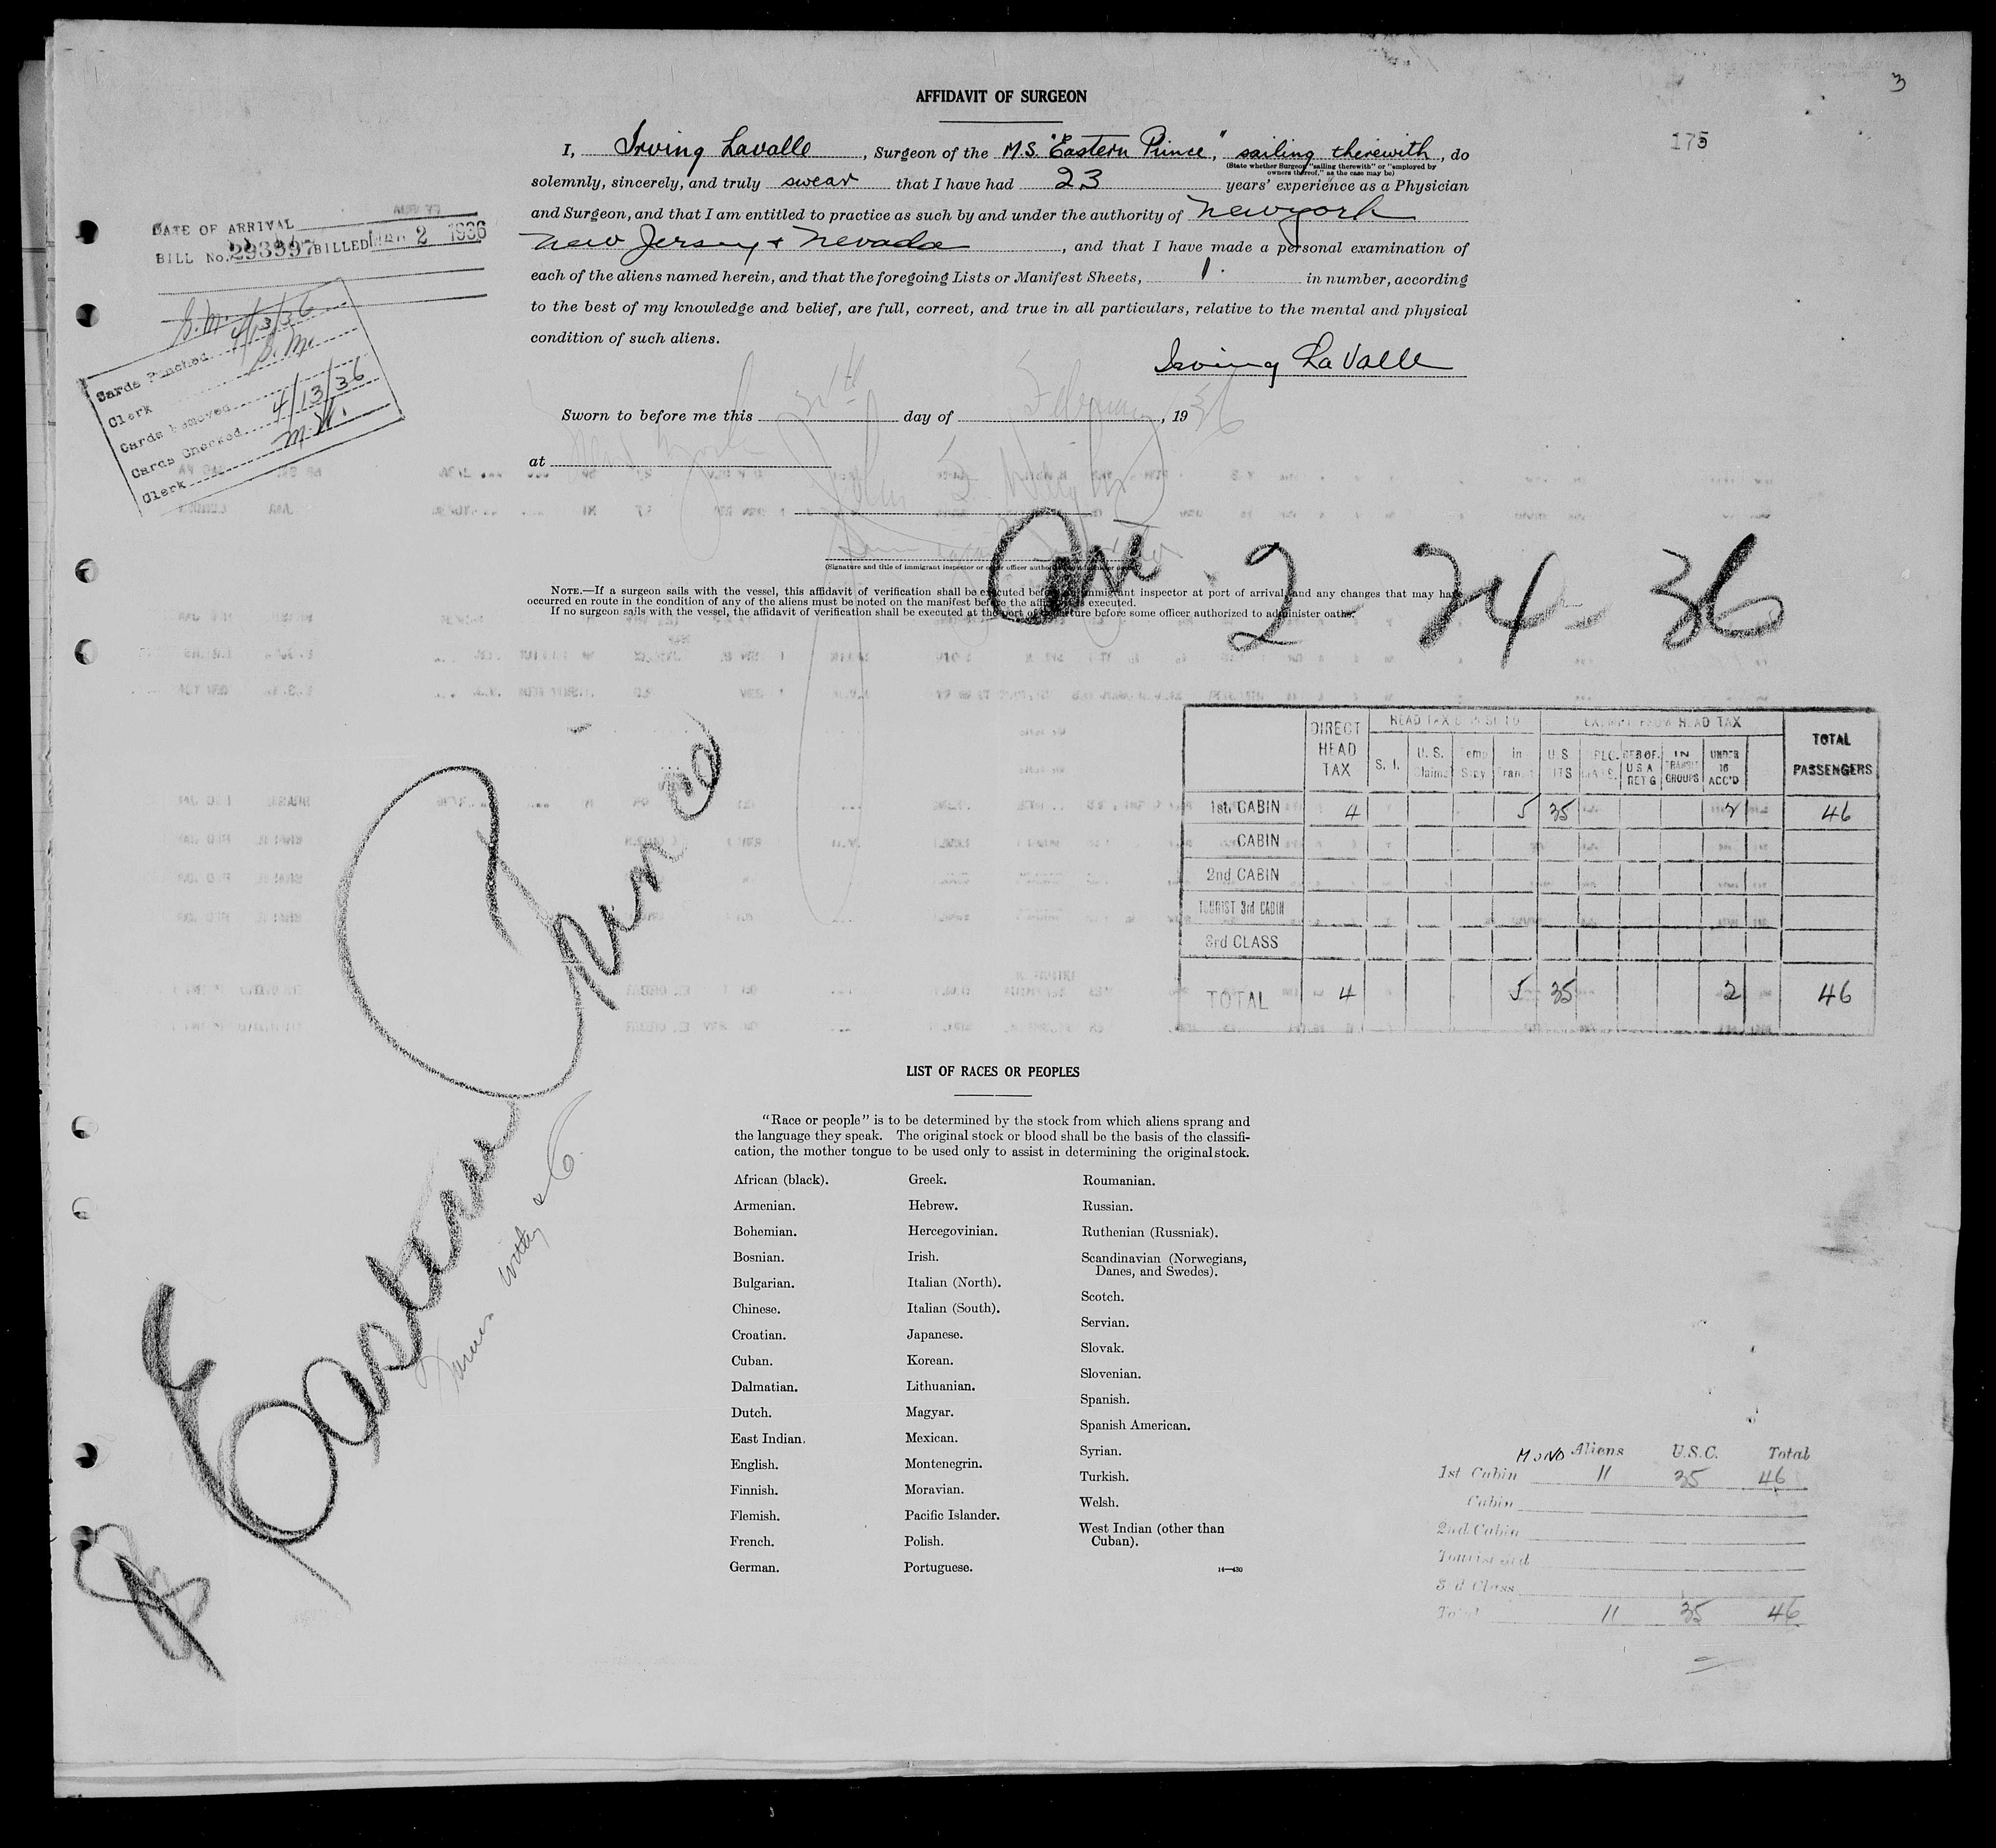 3
175
AFFIDAVIT OF SURGEON
I, Irving Lavalle, Surgeon of the M.S. "Eastern Prince," sailing therewith, do
(State whether Surgeon "sailing therewith" or "employed by
owners thereof," as the case may be)
solemnly, sincerely, and truly swear that I have had 23 years' experience as a Physician
and Surgeon, and that I am entitled to practice as such by and under the authority of New york
New Jersey + Nevada, and that I have made a personal examination of
each of the aliens named herein, and that the foregoing Lists or Manifest Sheets, 1. in number, according
to the best of my knowledge and belief, are full, correct, and true in all particulars, relative to the mental and physical
condition of such aliens.
Irving LaValle
Sworn to before me this day of February, 1936
at New York
(Signature and title of immigrant inspector or officer
NOTE.—If a surgeon sails with the vessel, this affidavit of verification shall be executed before immigrant inspector at port of arrival, and any changes that may have
occurred en route in the condition of any of the aliens must be noted on the manifest before the affidavit is executed.
If no surgeon sails with the vessel, the affidavit of verification shall be executed at the port of departure before some officer authorized to administer oaths.
DATE OF ARRIVAL
BILL No. 293597 BILLED MAR 2 1936
S.M.
Cards Punched 4/13/36
Clerk S.M.
Cards Removed
Cards Checked 4/13/36
Clerk M.W.
2 - 24 - 36
Eastern Prince
DIRECT HEAD TAX
HEAD TAX DEPOSITED
EXEMPT FROM HEAD TAX
TOTAL PASSENGERS
S. I.
U. S. Claims
Temp Stay
in Transit
U.S.
IN TRANSIT GROUPS
UNDER 16 ACC'D
1st. CABIN 4 5 35 2 46
CABIN
2nd CABIN
TOURIST 3rd CABIN
3rd CLASS
TOTAL 4 5 35 2 46
LIST OF RACES OR PEOPLES
"Race or people" is to be determined by the stock from which aliens sprang and
the language they speak. The original stock or blood shall be the basis of the classifi-
cation, the mother tongue to be used only to assist in determining the original stock.
African (black).
Armenian.
Bohemian.
Bosnian.
Bulgarian.
Chinese.
Croatian.
Cuban.
Dalmatian.
Dutch.
East Indian.
English.
Finnish.
Flemish.
French.
German.
Greek.
Hebrew.
Hercegovinian.
Irish.
Italian (North).
Italian (South).
Japanese.
Korean.
Lithuanian.
Magyar.
Mexican.
Montenegrin.
Moravian.
Pacific Islander.
Polish.
Portuguese.
Roumanian.
Russian.
Ruthenian (Russniak).
Scandinavian (Norwegians,
Danes, and Swedes).
Scotch.
Servian.
Slovak.
Slovenian.
Spanish.
Spanish American.
Syrian.
Turkish.
Welsh.
West Indian (other than
Cuban).
14—430
Aliens U.S.C. Total
1st Cabin 11 35 46
Cabin
2nd Cabin
Tourist 3rd
3rd Class
Total 11 35 46